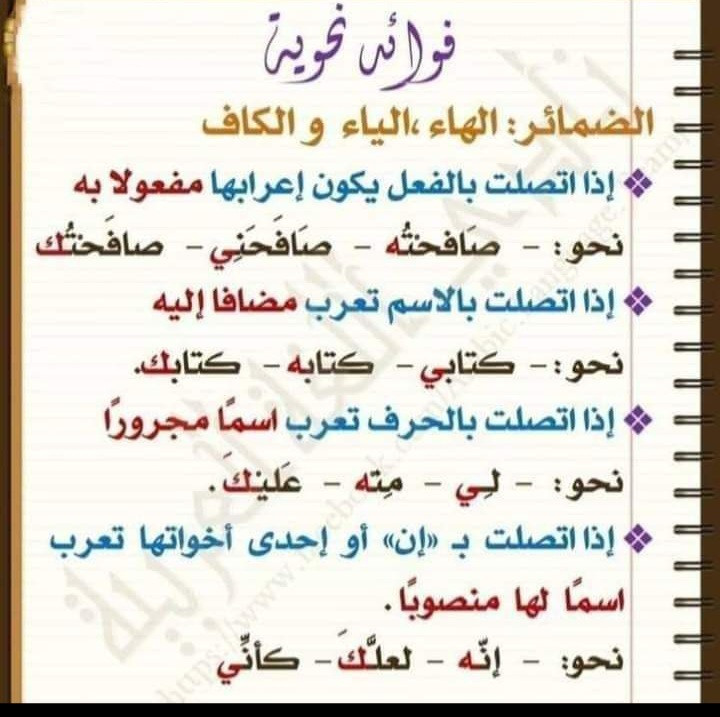 فوائد نحوية
الضمائر: الهاء ،الياء و الكاف
❖ إذا اتصلت بالفعل يكون إعرابها مفعولا به
نحو: - صَافحتُه - صَافَحَنِي - صافَحتُك
❖ إذا اتصلت بالاسم تعرب مضافا إليه
نحو:- كتابي- كتابه- كتابك.
❖ إذا اتصلت بالحرف تعرب اسمًا مجرورًا
نحو: - لِي - مِنه - عَليْكَ.
❖ إذا اتصلت بـ «إن» أو إحدى أخواتها تعرب
اسمًا لها منصوبًا.
نحو: - إنّه - لعلَّكَ- كأنِّي